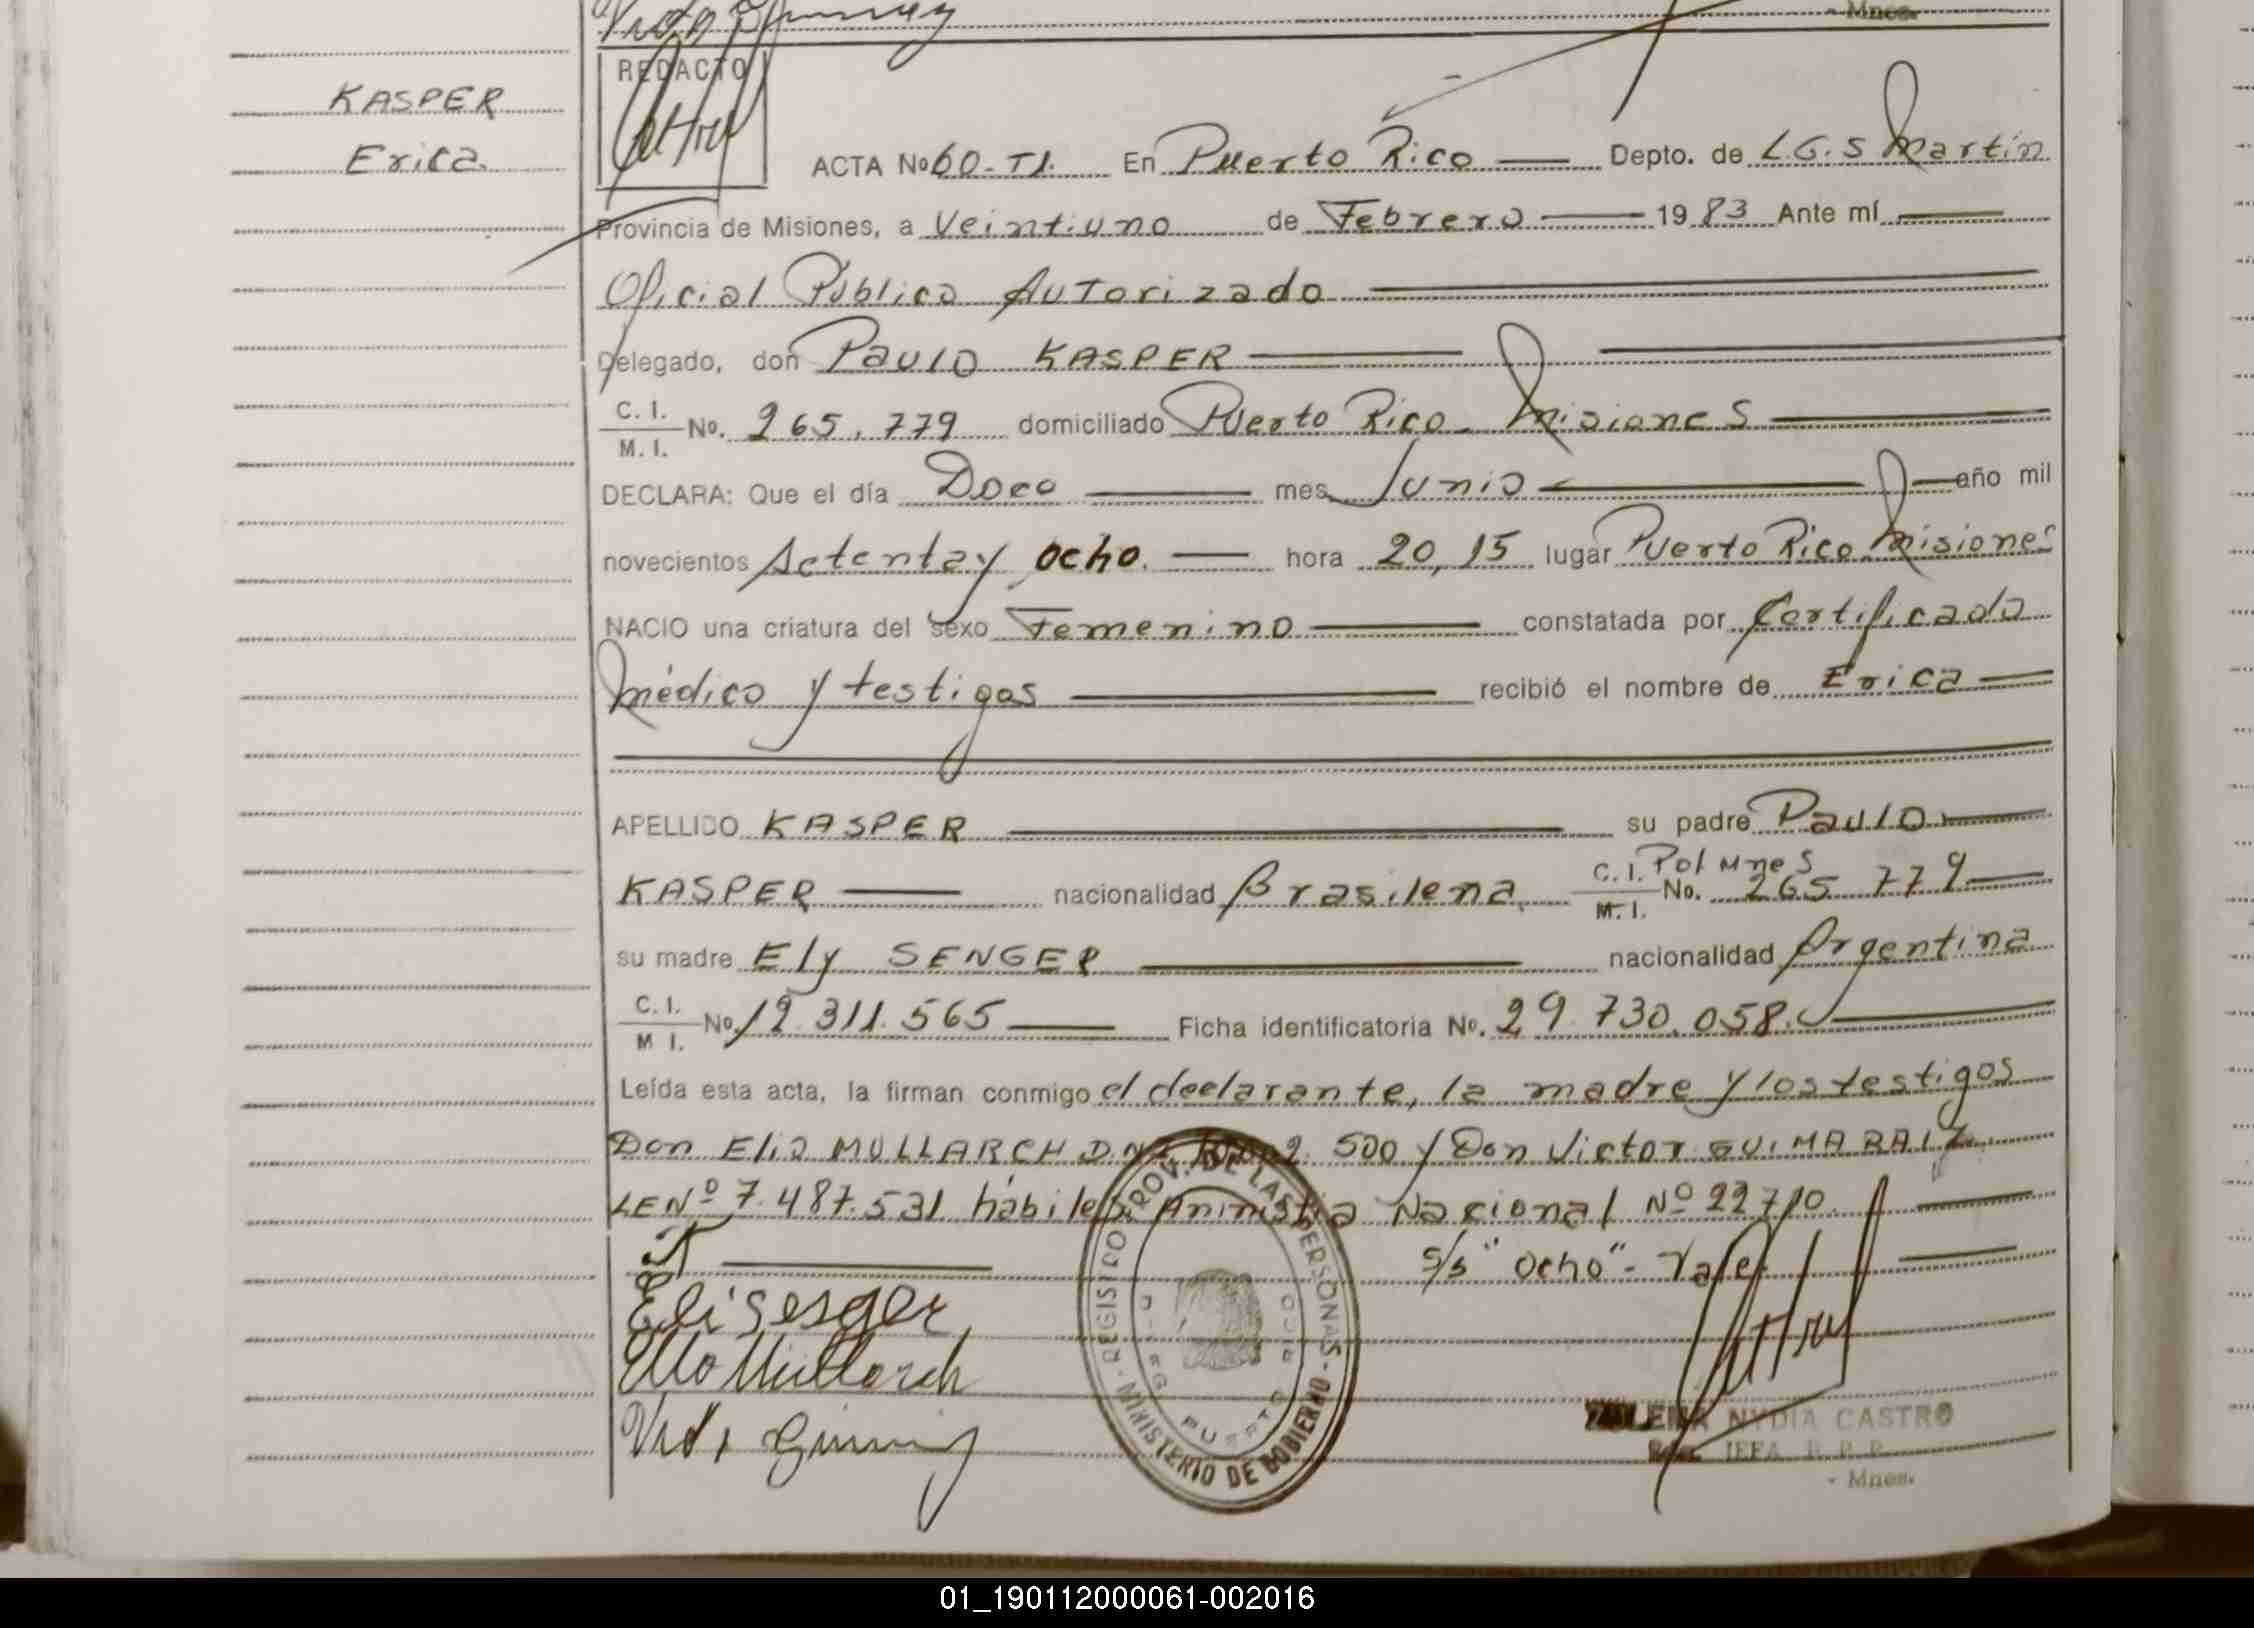 - Mnes.
KASPER
Erica.
REDACTO
ACTA Nº 60-T1. En Puerto Rico Depto. de L.G.S Martín
Provincia de Misiones, a Veintiuno de Febrero 1983 Ante mí
Oficial Público Autorizado
Delegado, don Paulo KASPER
C. I. / M. I. No. 265.779 domiciliado Puerto Rico - Misiones
DECLARA: Que el día Doce mes Junio año mil
novecientos setenta y ocho. hora 20,15 lugar Puerto Rico Misiones
NACIO una criatura del sexo Femenino constatada por Certificado
médico y testigos recibió el nombre de Erica
APELLIDO KASPER su padre Paulo
KASPER nacionalidad Brasilena. C. I. / M. I. Pol Mnes No. 265 779
su madre Ely SENGER nacionalidad Argentina
C. I. / M I. No. 12.311.565 Ficha identificatoria No. 29.730.058.
Leída esta acta, la firman conmigo el declarante, la madre y los testigos
Don Elio MULLARCH D.N.I. 2.500 y Don Victor GUIMARAIZ
LE Nº 7.487.531 hábiles. Aministia Nacional Nº 22710.
S/s "Ocho" - Vale
Eli Sesger
Elio Müllarch
REGISTRO PROV. DE LAS PERSONAS
- MINISTERIO DE GOBIERNO -
PUERTO
NYDIA CASTRO
JEFA R. P. P.
- Mnes.
01_190112000061-002016